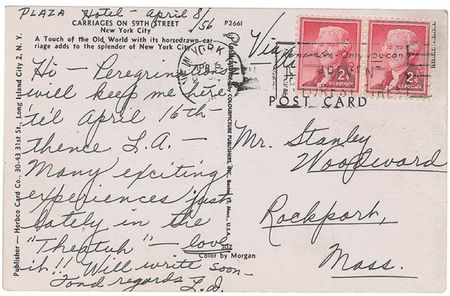 PLAZA Hotel - April 8/56
CARRIAGES ON 59TH STREET
New York City
P2661
A Touch of the Old World with its horsedrawn car-
riage adds to the splendor of New York City.
Hi - Peregrinations
will keep me here
'til April 16th -
thence L.A.
Many exciting
experiences just
lately in the
"Theatuh" - love
it!! Will write soon -
Fond regards L.J.
Color by Morgan
Publisher — Herbco Card Co., 30-43 31st St., Long Island City 2, N. Y.
Via
NEW YORK
2¢
2¢
POST CARD
Mr. Stanley
Woodward
Rockport,
Mass.